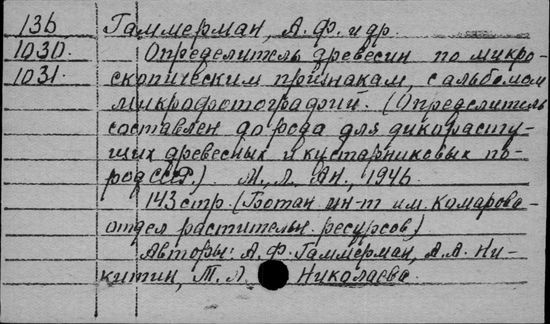 136 Гаммерман, А.Ф. и др.
1030. Определитель древесин по микро-
1031. скопическим признакам, с альбомом
микрофотографий. (Определитель
составлен до рода для дикорасту-
щих древесных и кустарниковых по-
род СССР.) М., Л. АН., 1946.
143 стр. (Ботан ин-т им. Комарова-
отдел растительн. ресурсов)
Авторы: А.Ф. Гаммерман, А.А. Ни-
китин, Т.Л. Николаева.